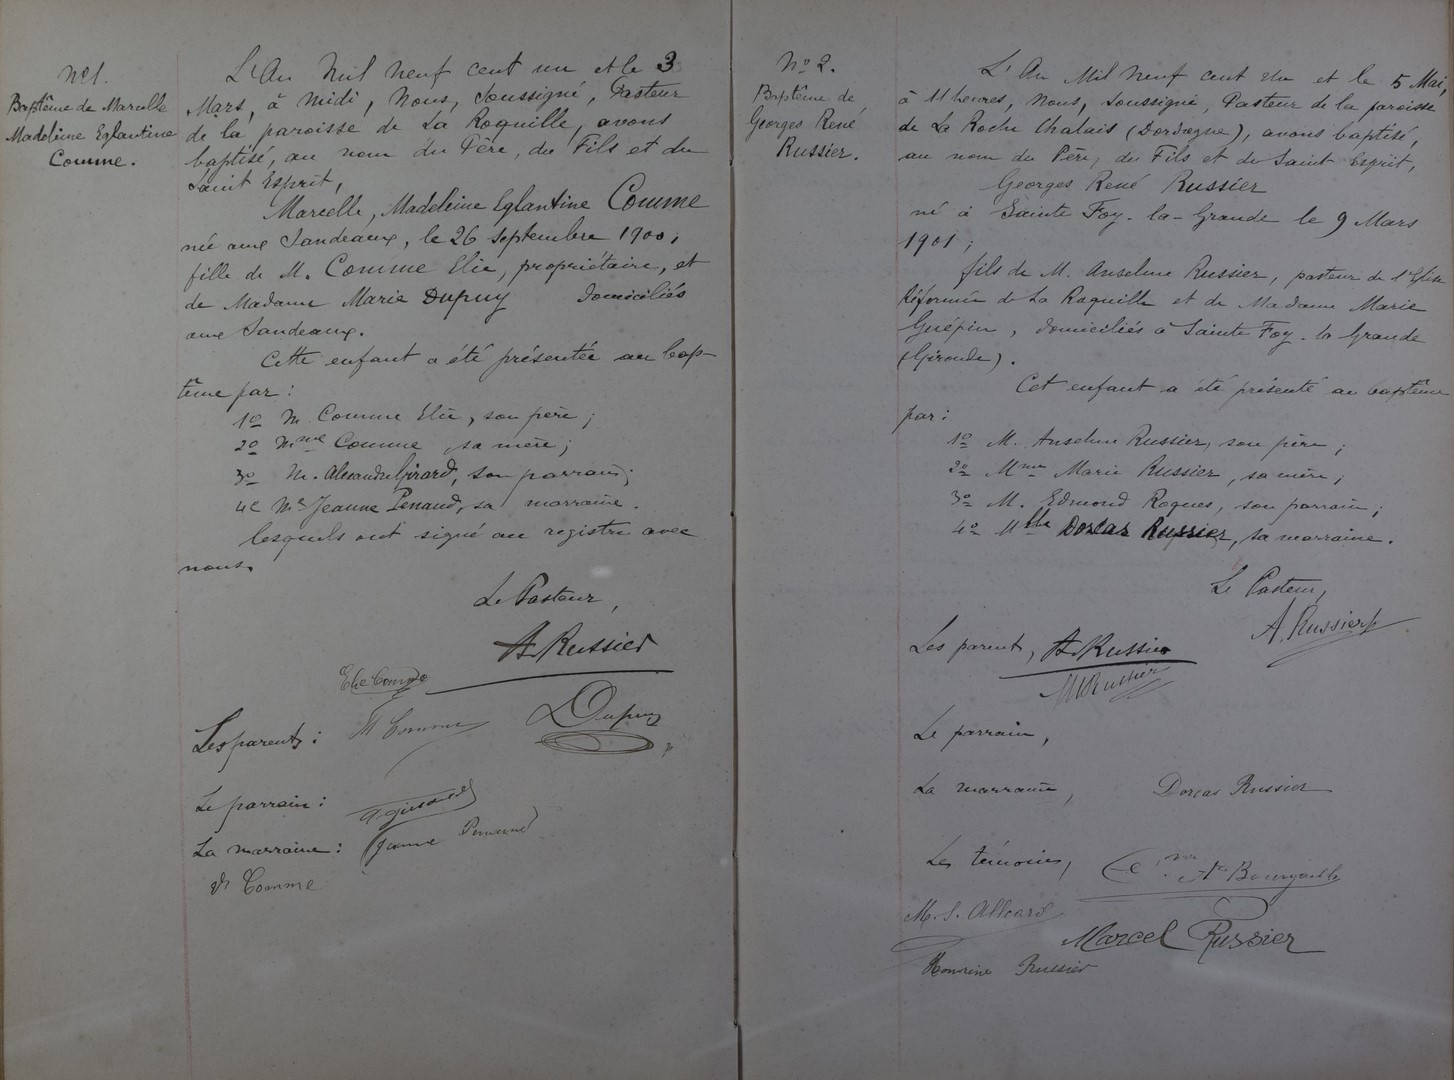 N° 1.
Baptême de Marcelle
Madeleine Eglantine
Comme.
L'An Mil neuf cent un et le 3
Mars, à midi, Nous, soussigné, Pasteur
de la paroisse de La Roquille, avons
baptisé, au nom du Père, du Fils et du
Saint Esprit,
Marcelle, Madeleine Eglantine Comme
née aux Jandeaux, le 26 septembre 1900;
fille de M. Comme Elie, propriétaire, et
de Madame Marie Dupuy domiciliés
aux Jandeaux.
Cette enfant a été présentée au bap-
tême par :
1° M. Comme Elie, son père;
2° Mme Comme sa mère;
3° M. Alexandre Girard, son parrain;
4e Me Jeanne Penaud, sa marraine.
lesquels ont signé au registre avec
nous.
Le Pasteur,
A. Russier
Elie Comme
Les parents : M Comme Dupuy
Le parrain : A girard
La marraine : Jeanne Penaud
Comme
N° 2.
Baptême de
Georges René
Russier.
L'An Mil neuf cent un et le 5 Mai,
à 11 heures, Nous, soussigné, Pasteur de la paroisse
de La Roche Chalais (Dordogne), avons baptisé,
au nom du Père, du Fils et du Saint Esprit,
Georges René Russier
né à Sainte Foy-la-Grande le 9 Mars
1901;
fils de M. Anselme Russier, pasteur de l'Eglise
Réformée de La Roquille et de Madame Marie
Guépin, domiciliés à Sainte Foy-la Grande
(Gironde).
Cet enfant a été présenté au baptême
par :
1° M. Anselme Russier, son père;
2° Mme Marie Russier, sa mère;
3° M. Edmond Roques, son parrain;
4° Mlle Dorcas Russier, sa marraine.
Le Pasteur,
A. Russier p
Les parent, A. Russier
M Russier
Le parrain,
La marraine, Dorcas Russier
Les témoins,
M. S. Allard
Marcel Russier
Honorine Russier